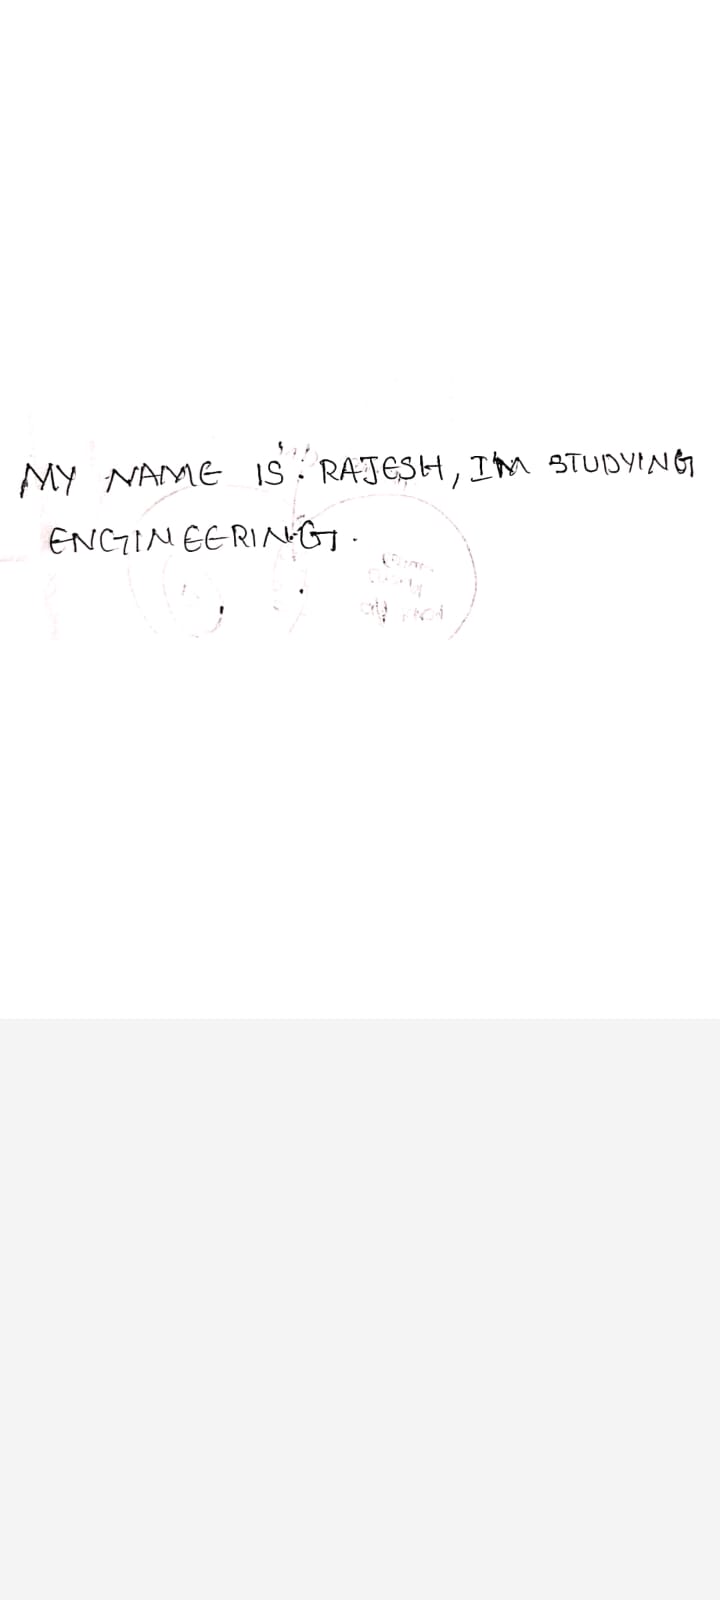 MY NAME IS. RAJESH, I'M STUDYING
ENGINEERING.